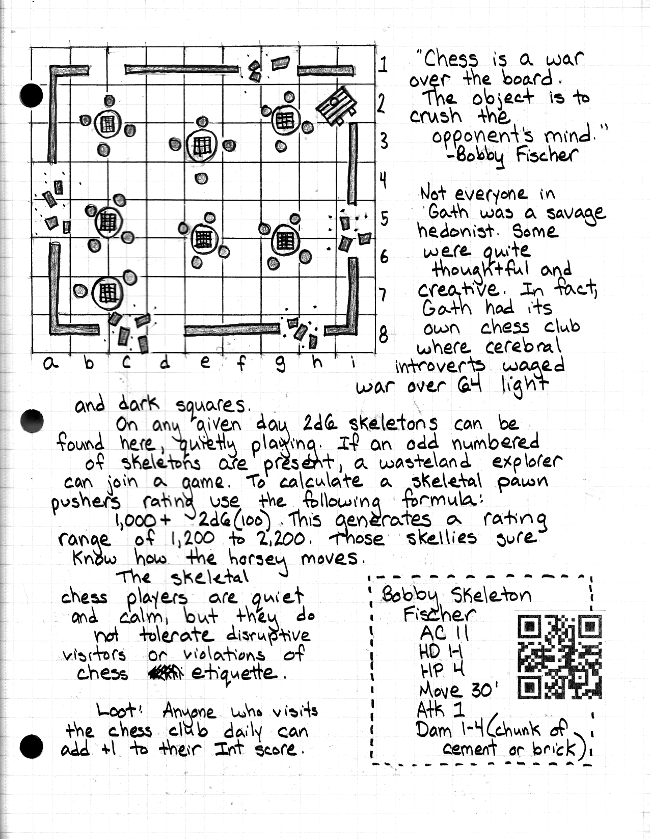 1
2
3
4
5
6
7
8
a b c d e f g h i
"Chess is a war
over the board.
The object is to
crush the
opponent's mind."
-Bobby Fischer
Not everyone in
Gath was a savage
hedonist. Some
were quite
thoughtful and
creative. In fact,
Gath had its
own chess club
where cerebral
introverts waged
war over 64 light
and dark squares.
On any given day 2d6 skeletons can be
found here, quietly playing. If an odd numbered
of skeletons are present, a wasteland explorer
can join a game. To calculate a skeletal pawn
pushers rating use the following formula:
1,000 + 2d6(100). This generates a rating
range of 1,200 to 2,200. Those skellies sure
know how the horsey moves.
The skeletal
chess players are quiet
and calm, but they do
not tolerate disruptive
visitors or violations of
chess etiquette.
Loot: Anyone who visits
the chess club daily can
add +1 to their Int score.
Bobby Skeleton
Fischer
AC 11
HD 1-1
HP 4
Move 30'
Atk 1
Dam 1-4 (chunk of
cement or brick)